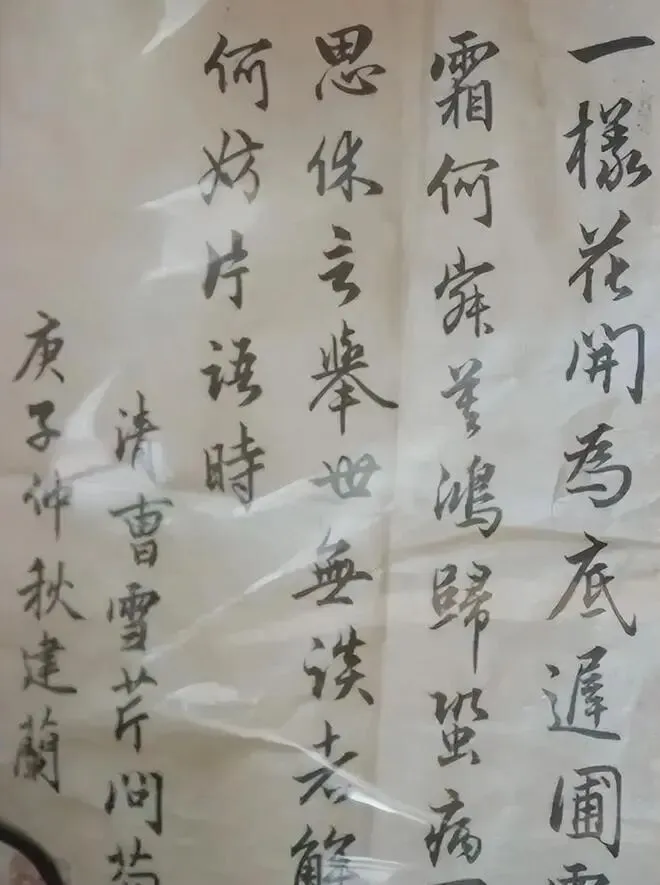 一樣花開為底遲圃
霜何寂莫鴻歸蛩病
思休言舉世無談者解
何妨片語時
清曹雪芹問菊
庚子仲秋建蘭